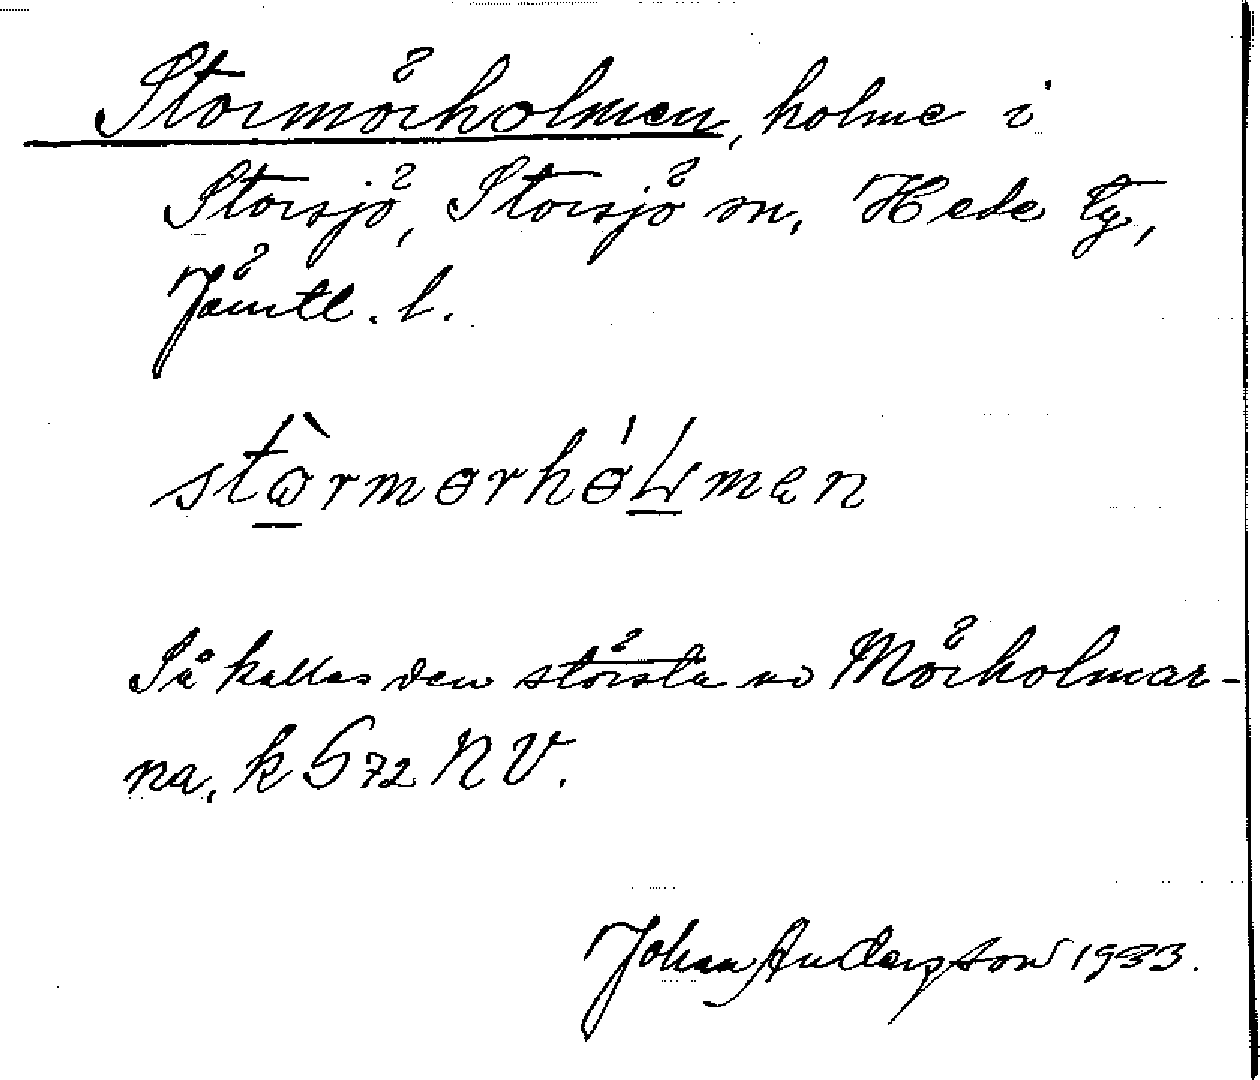 Stormörholmen, holme i
Storsjö, Storsjö sn, Hede tg,
Jämtl. l.
Så kallas den största av Mörholmar-
na, k S72 NV.
Johan Andersson 1933.